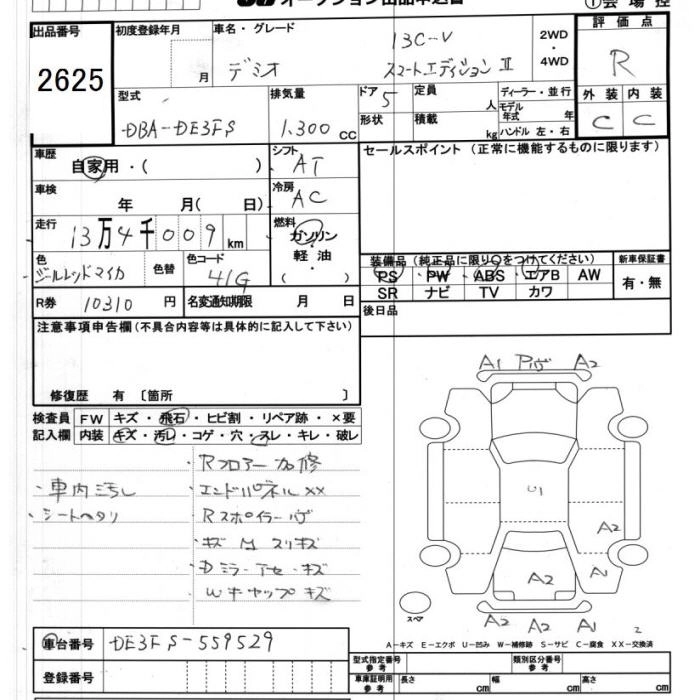 出品番号 初度登録年月 車名・グレード 評価点
2625 月 デミオ 13C-V 2WD・4WD R
スマートエディション Ⅱ
型式 排気量 ドア 定員 ディーラー・並行 外装 内装
DBA-DE3FS 1.300 cc 5 人 モデル年式 年 C C
形状 積載 kg ハンドル 左・右
車歴 シフト セールスポイント (正常に機能するものに限ります)
自家用・( ) AT
車検 冷房
年 月( 日) AC
走行 燃料
13万4千009km ガソリン・軽油・( )
色 色替 色コード 装備品 (純正品に限り○をつけてください) 新車保証書
ジールレッドマイカ 41G PS PW ABS エアB AW 有・無
SR ナビ TV カワ
R券 10310 円 名変通知期限 月 日 後日品
注意事項申告欄(不具合内容等は具体的に記入して下さい)
修復歴 有 〔箇所 〕
検査員 FW キズ・飛石・ヒビ割・リペア跡・×要
記入欄 内装 キズ・汚レ・コゲ・穴・スレ・キレ・破レ
・Rフロアー 加修
・車内汚し ・エンドパネル XX
・シートヘタリ ・Rスポイラーハゲ
・キズ M スリキズ
・Dミラー アセ・キズ
・Wキャップ キズ
A1 Pハゲ A2
U1
A2
A2 A1
スペア A2 A2 A1 2
A-キズ E-エクボ U-凹み W-補修跡 S-サビ C-腐食 XX-交換済
車台番号 DE3FS-559529
登録番号
型式指定番号 参考 類別区分番号 参考
車庫証明用 参考 長さ cm 幅 cm 高さ cm